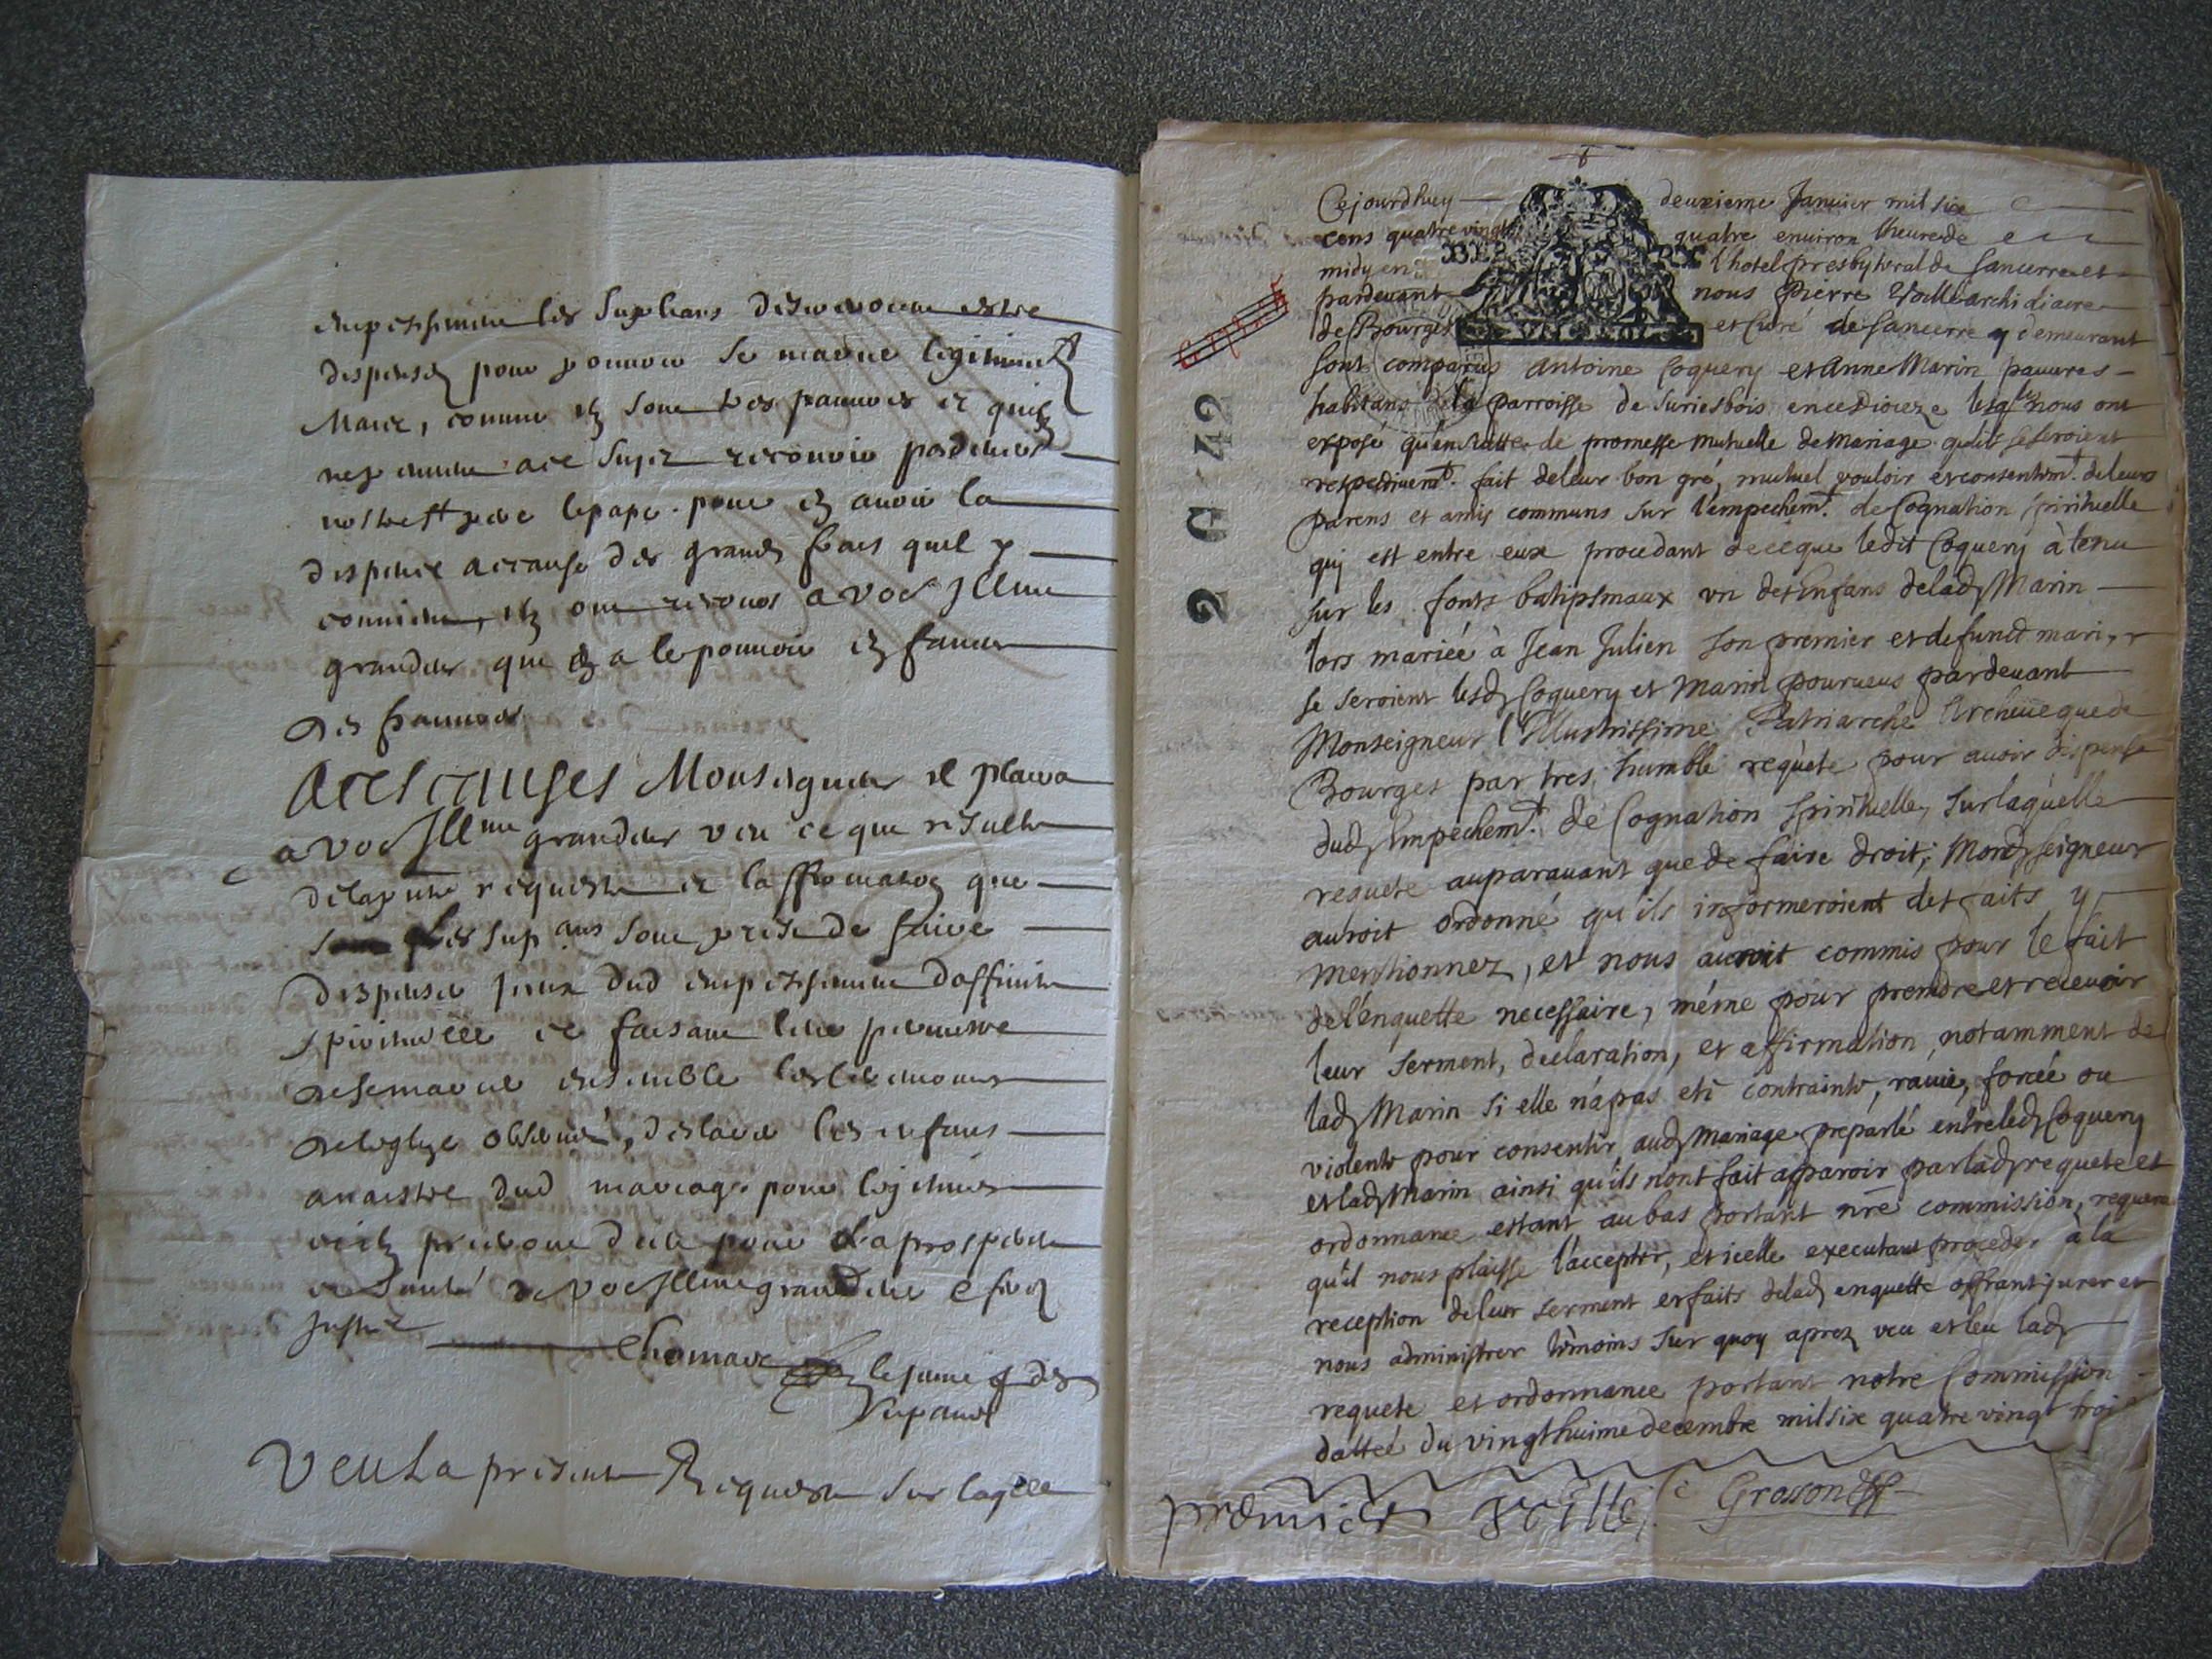 empeschement les Suplians desireroient estre
dispensez pour pouvoir se marier legitimemt
Mais, comme ilz sont tres pauvres et quilz
ne peuvent a ce sujet recourir pardevers
nostre St pere le pape pour en avoir la
dispence a cause des grands frais quil y
convient, ilz ont recours a vostre Illme
grandeur qui en a le pouvoir en faveur
des pauvres
A ces causes Monseigneur il plaira
a vostre Illme grandeur veu ce que resulte
de la pnte requeste et laffirmation que
les supans sont prests de faire
dispenser iceux dud empeschement daffinité
spirituelle ce faisant leur permettre
de se marier ensemble les ceremonies
de leglize observées, declarer les enfans
a naistre dud mariage pour legitimes
et ilz prieront dieu pour la prosperité
et santé de vostre Illme grandeur
justice
des
supans
Veu La presente Requeste sur laqlle
Cejourdhuy deuxieme Januier mil six
cens quatre vingt quatre enuiron lheure de
midy en l'hotel presbyteral de Sancerre et
pardeuant nous Pierre archidiacre
de Bourges et Curé de Sancerre y demeurant
sont comparus Antoine Coquery et Anne Marin pauures
habitans de la parroisse de Suriesbois en ce Dioceze lesqls nous ont
exposé qu'en suitte de promesse mutuelle de Mariage qu'ils se seroient
respectiuemt. fait de leur bon gré, mutuel vouloir et consentemt. de leurs
parens et amis communs sur l'empechemt. de Cognation spirituelle
qui est entre eux procedant de ce que ledit Coquery à tenu
sur les fonts batipsmaux vn des Enfans de lad Marin
lors mariée à Jean Julien son premier et defunct mari,
se seroient lesd Coquery et Marin pourueus pardeuant
Monseigneur l'Illustrissime Patriarche Archeueque de
Bourges par tres humble requête pour auoir dispense
dud Empechemt. de Cognation Spirituelle, sur laquelle
requete auparauant que de faire droit; mond seigneur
auroit ordonné qu'ils informeroient des faits y
mentionnez, et nous auroit commis pour le fait
de l'enquette necessaire, méme pour prendre et receuoir
leur serment, declaration, et affirmation, notamment de
lad Marin si elle n'a pas eté contrainte, rauie, forcée ou
violente pour consentir aud mariage préparlé entre led Coquery
et lad Marin ainsi qu'ils n'ont fait apparoir par lad requete et
ordonnance estant au bas portant nre commission, requera
qu'il nous plaisse l'accepter, et icelle executant proceder à la
reception de leur serment et faits de lad enquette offrant jurer et
nous administrer témoins sur quoy aprez veu et leu lad
requete et ordonnance portant notre Commission
dattée du vingthuime decembre mil six quatre vingt trois
premier Grosson
BERRY
2 G 42